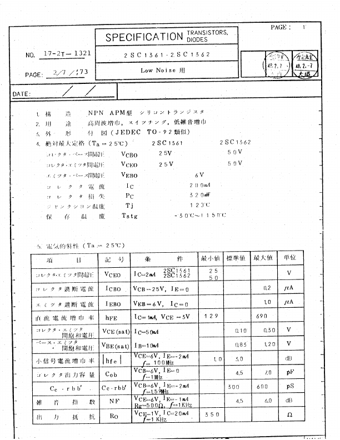 PAGE: 1
SPECIFICATION TRANSISTORS, DIODES
NO. 17-2T-1321
2SC1561-2SC1562
PAGE: 2/7/'73
Low Noise 用
DATE: / /
1. 構 造 NPN APM型 シリコントランジスタ
2. 用 途 高周波増巾、スイッチング、低雑音増巾
3. 外 形 付図 (JEDEC TO-92類似)
4. 絶対最大定格 (Ta=25℃) 2SC1561 2SC1562
コレクタ・ベース間電圧 VCBO 25V 50V
コレクタ・エミッタ間電圧 VCEO 25V 50V
エミッタ・ベース間電圧 VEBO 6V
コレクタ電流 IC 200mA
コレクタ損失 PC 320mW
ジャンクション温度 Tj 125℃
保存温度 Tstg -50℃~+150℃
5. 電気的特性 (Ta=25℃)
項 目 記号 条 件 最小値 標準値 最大値 単位
コレクタ・エミッタ間電圧 VCEO IC=2mA 2SC1561 2SC1562 25 50 V
コレクタ遮断電流 ICBO VCB=25V, IE=0 0.2 μA
エミッタ遮断電流 IEBO VEB=6V, IC=0 1.0 μA
直流電流増巾率 hFE IC=1mA, VCE=5V 129 690
コレクタ・エミッタ間飽和電圧 VCE(sat) IC=50mA 0.10 0.30 V
ベース・エミッタ間飽和電圧 VBE(sat) IB=10mA 0.85 1.20 V
小信号電流増巾率 |hfe| VCE=6V, IE=-2mA f=100MHz 1.0 5.0 dB
コレクタ出力容量 Cob VCB=6V, IE=0 f=1MHz 4.5 7.0 pF
Cc・rbb' Cc・rbb' VCE=6V, IE=-2mA f=1.5MHz 300 600 pS
雑音指数 NF VCE=6V, IE=-1mA Rg=500Ω, f=1KHz 4.5 6.0 dB
出力抵抗 RO VCE=1V, IC=20mA f=1KHz 550 Ω